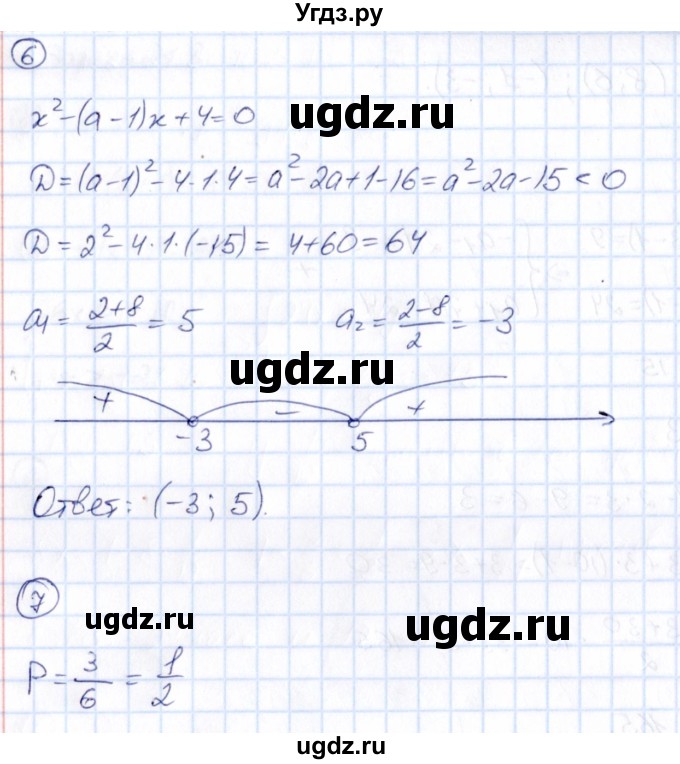 Угдз.ру
6
x²-(a-1)x+4=0
ugdz.ru
D=(a-1)²-4·1·4=a²-2a+1-16=a²-2a-15<0
D=2²-4·1·(-15)=4+60=64
a₁=(2+8)/2=5 a₂=(2-8)/2=-3
ugdz.ru
+ - +
-3 5
Ответ: (-3; 5).
7
ugdz.ru ugdz.ru
P=3/6=1/2
ugdz.ru